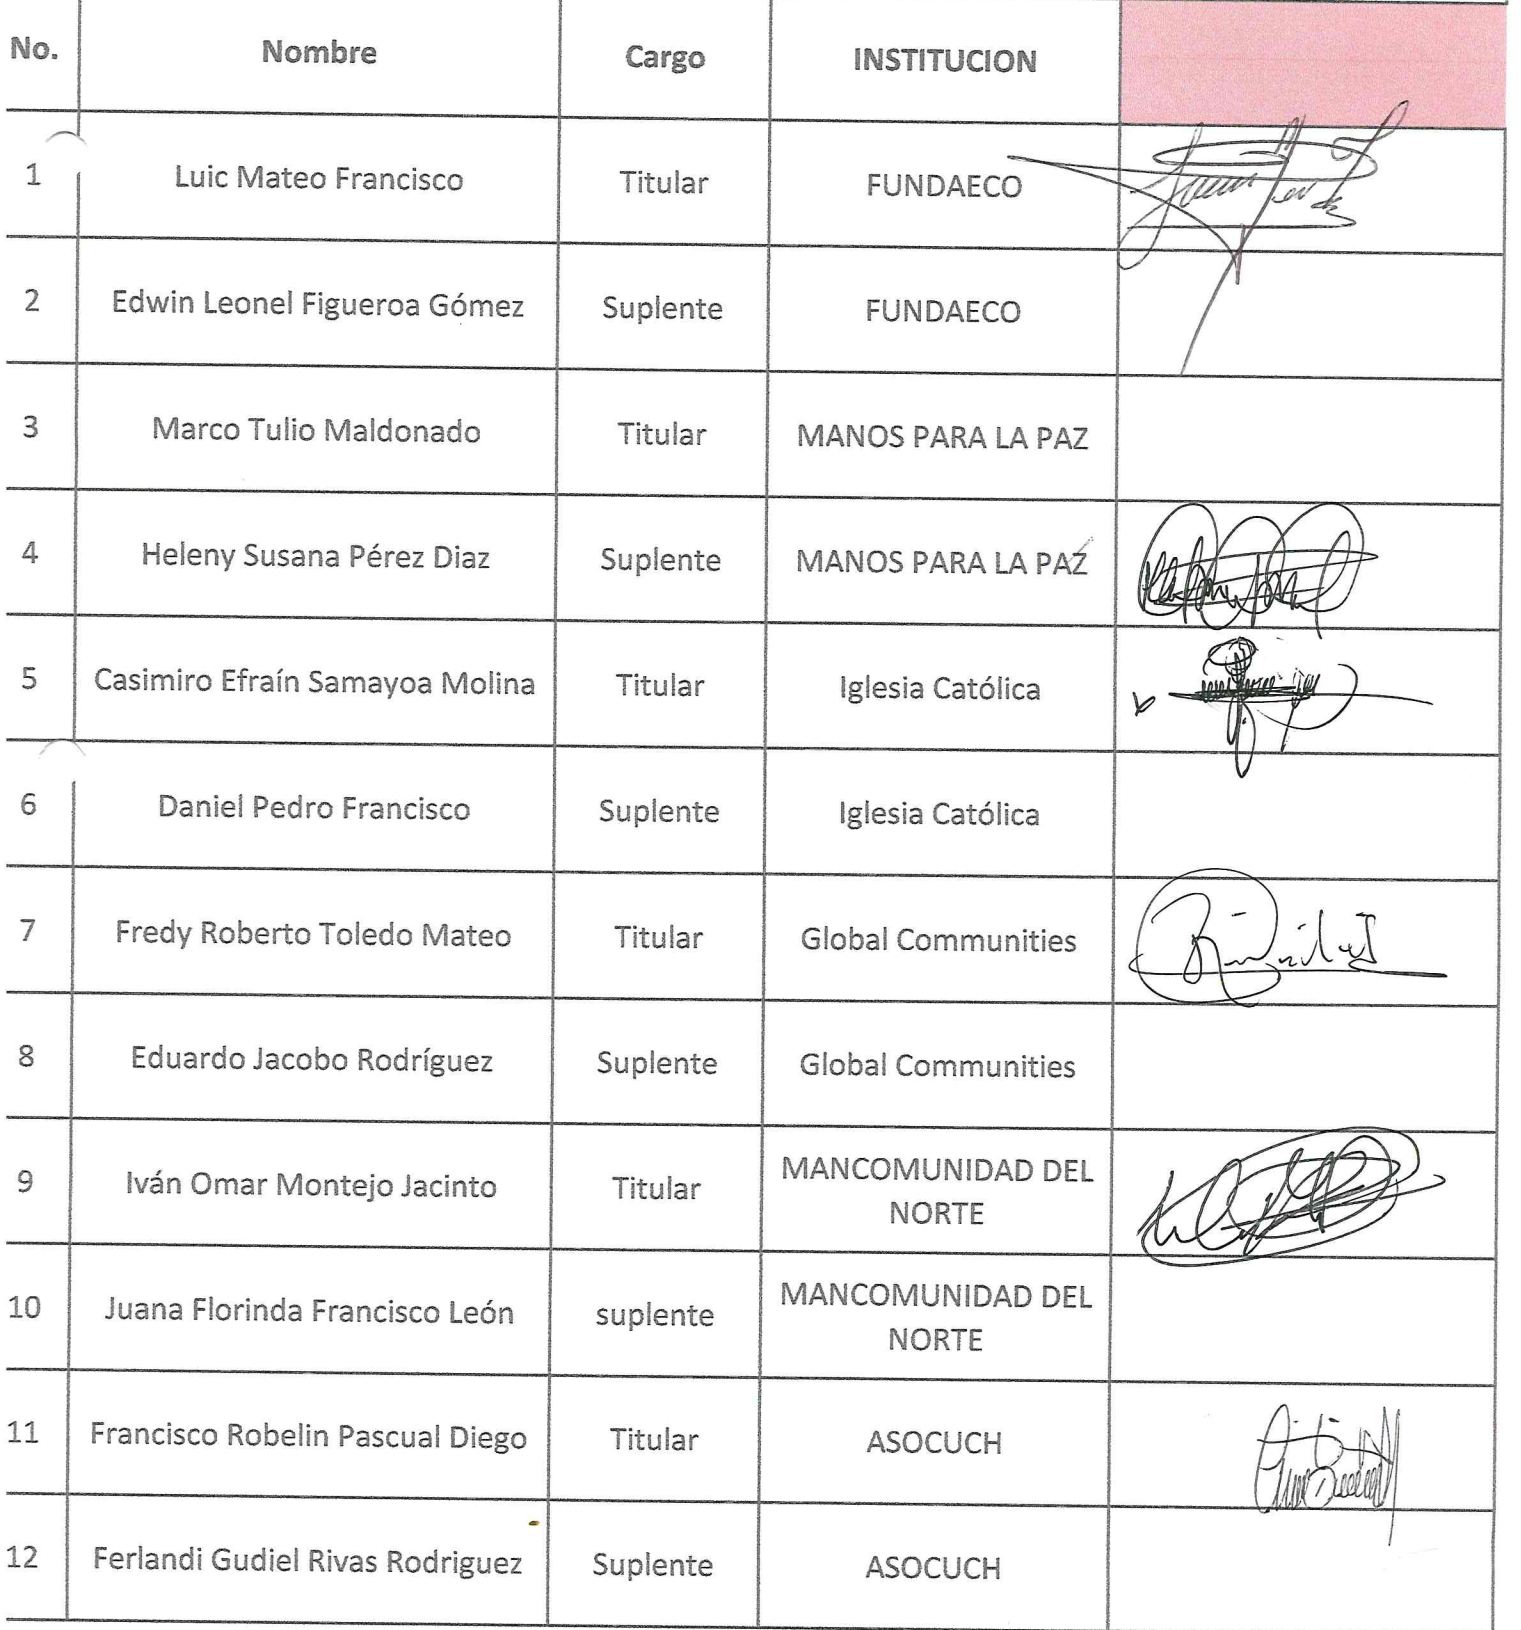 No. Nombre Cargo INSTITUCION
1 Luic Mateo Francisco Titular FUNDAECO
2 Edwin Leonel Figueroa Gómez Suplente FUNDAECO
3 Marco Tulio Maldonado Titular MANOS PARA LA PAZ
4 Heleny Susana Pérez Diaz Suplente MANOS PARA LA PAZ
5 Casimiro Efraín Samayoa Molina Titular Iglesia Católica
6 Daniel Pedro Francisco Suplente Iglesia Católica
7 Fredy Roberto Toledo Mateo Titular Global Communities
8 Eduardo Jacobo Rodríguez Suplente Global Communities
9 Iván Omar Montejo Jacinto Titular MANCOMUNIDAD DEL
NORTE
10 Juana Florinda Francisco León suplente MANCOMUNIDAD DEL
NORTE
11 Francisco Robelin Pascual Diego Titular ASOCUCH
12 Ferlandi Gudiel Rivas Rodriguez Suplente ASOCUCH